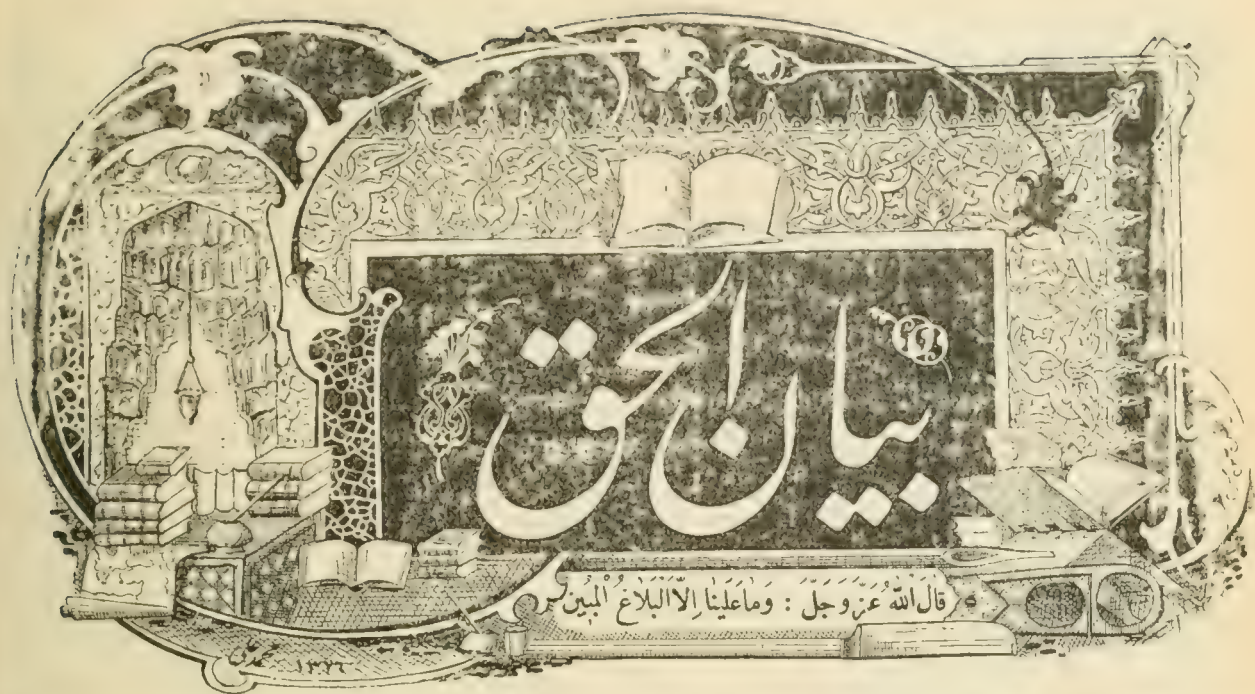 بيان الحق
قال الله عز وجل : وَمَا عَلَينَا اِلاَّ البَلاَغُ المُبين
١٣٢٦